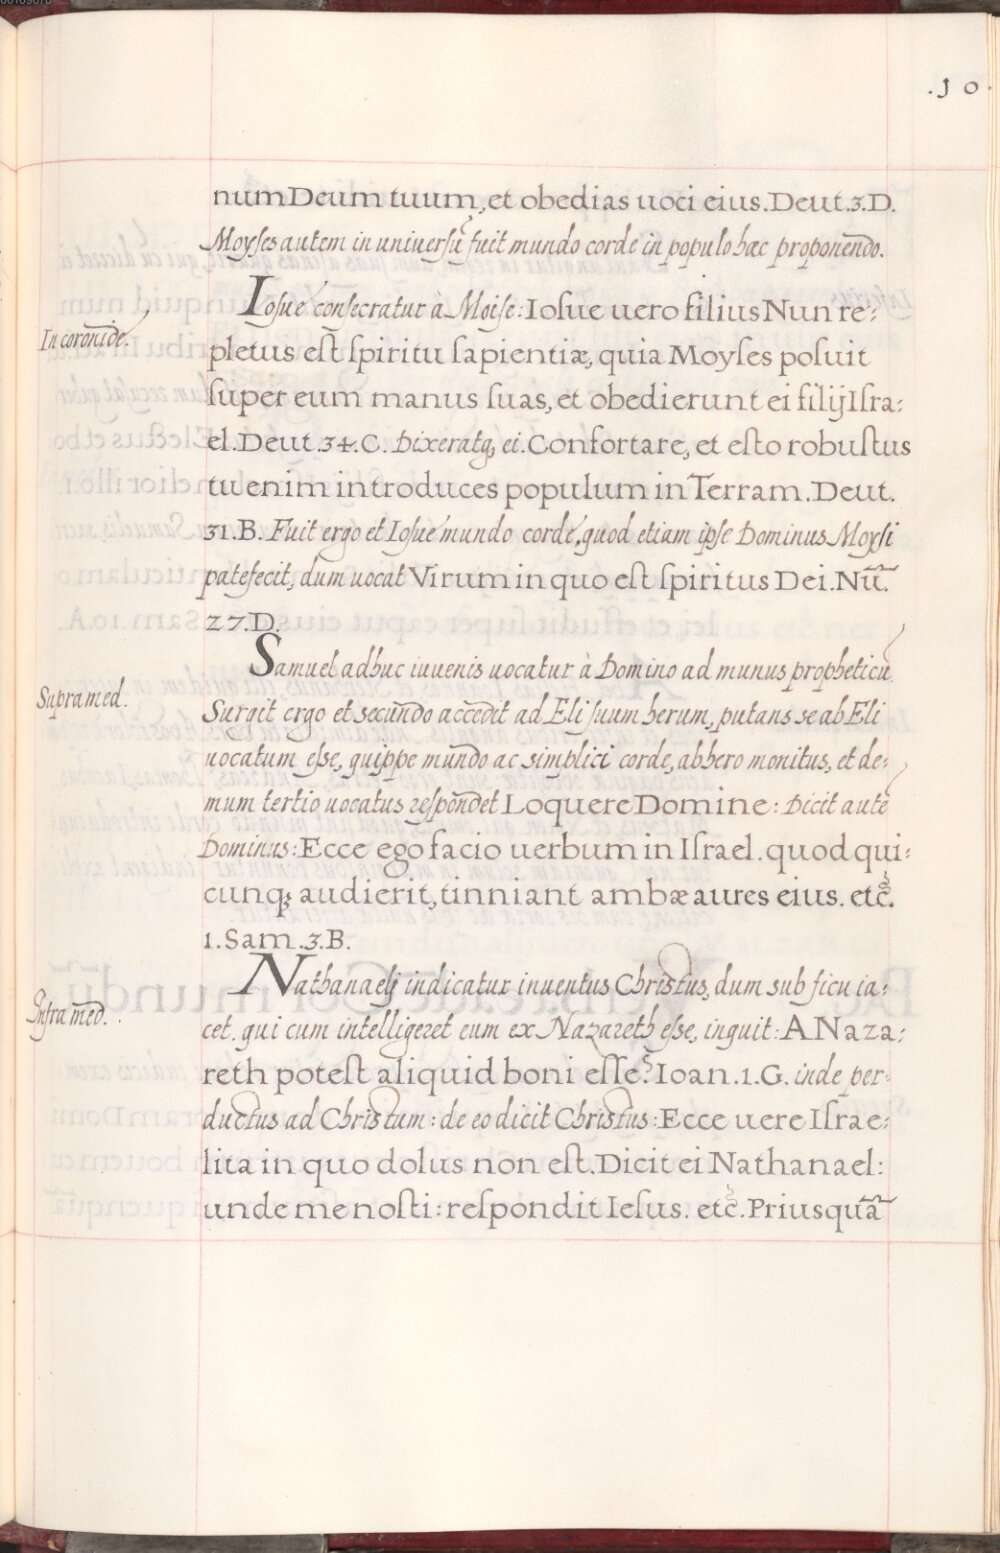 .10.
numDeum tuum, et obedias uoci eius. Deut.3.D.
Moyses autem in uniuersũ fuit mundo corde in populo hac proponendo.
In coronide.
Iosue consecratur à Moise: Iosue uero filius Nun re-
pletus est spiritu sapientiæ, quia Moyses posuit
super eum manus suas, et obedierunt ei filij Isra:
el. Deut.34.C. Dixeratq, ei. Confortare, et esto robustus
tu enim introduces populum in Terram. Deut.
31.B. Fuit ergo et Iosue mundo corde, quod etiam ipse Dominus Moysi
patefecit, dum uocat Virum in quo est spiritus Dei. Nũ.
27.D.
Samuel adhuc iuuenis uocatur à Domino ad munus propheticũ.
Supra med.
Surgit ergo et secundo accedit ad Eli suum herum, putans se ab Eli
uocatum esse, quippe mundo ac simplici corde, ab hero monitus, et de-
mum tertio uocatus respondet Loquere Domine: Dicit autẽ
Dominus: Ecce ego facio uerbum in Israel. quod qui:
cunq; audierit, tinniant ambæ aures eius. etc̃.
1.Sam.3.B.
Nathanaeli indicatur inuentus Christus, dum sub ficu ia:
Infra med.
cet. qui cum intelligeret eum ex Nazareth esse, inquit: A Naza:
reth potest aliquid boni esse? Ioan.1.G. inde per-
ductus ad Christum: de eo dicit Christus: Ecce uere Israe:
lita in quo dolus non est. Dicit ei Nathanael:
unde me nosti: respondit Iesus. etc̃. Priusquã